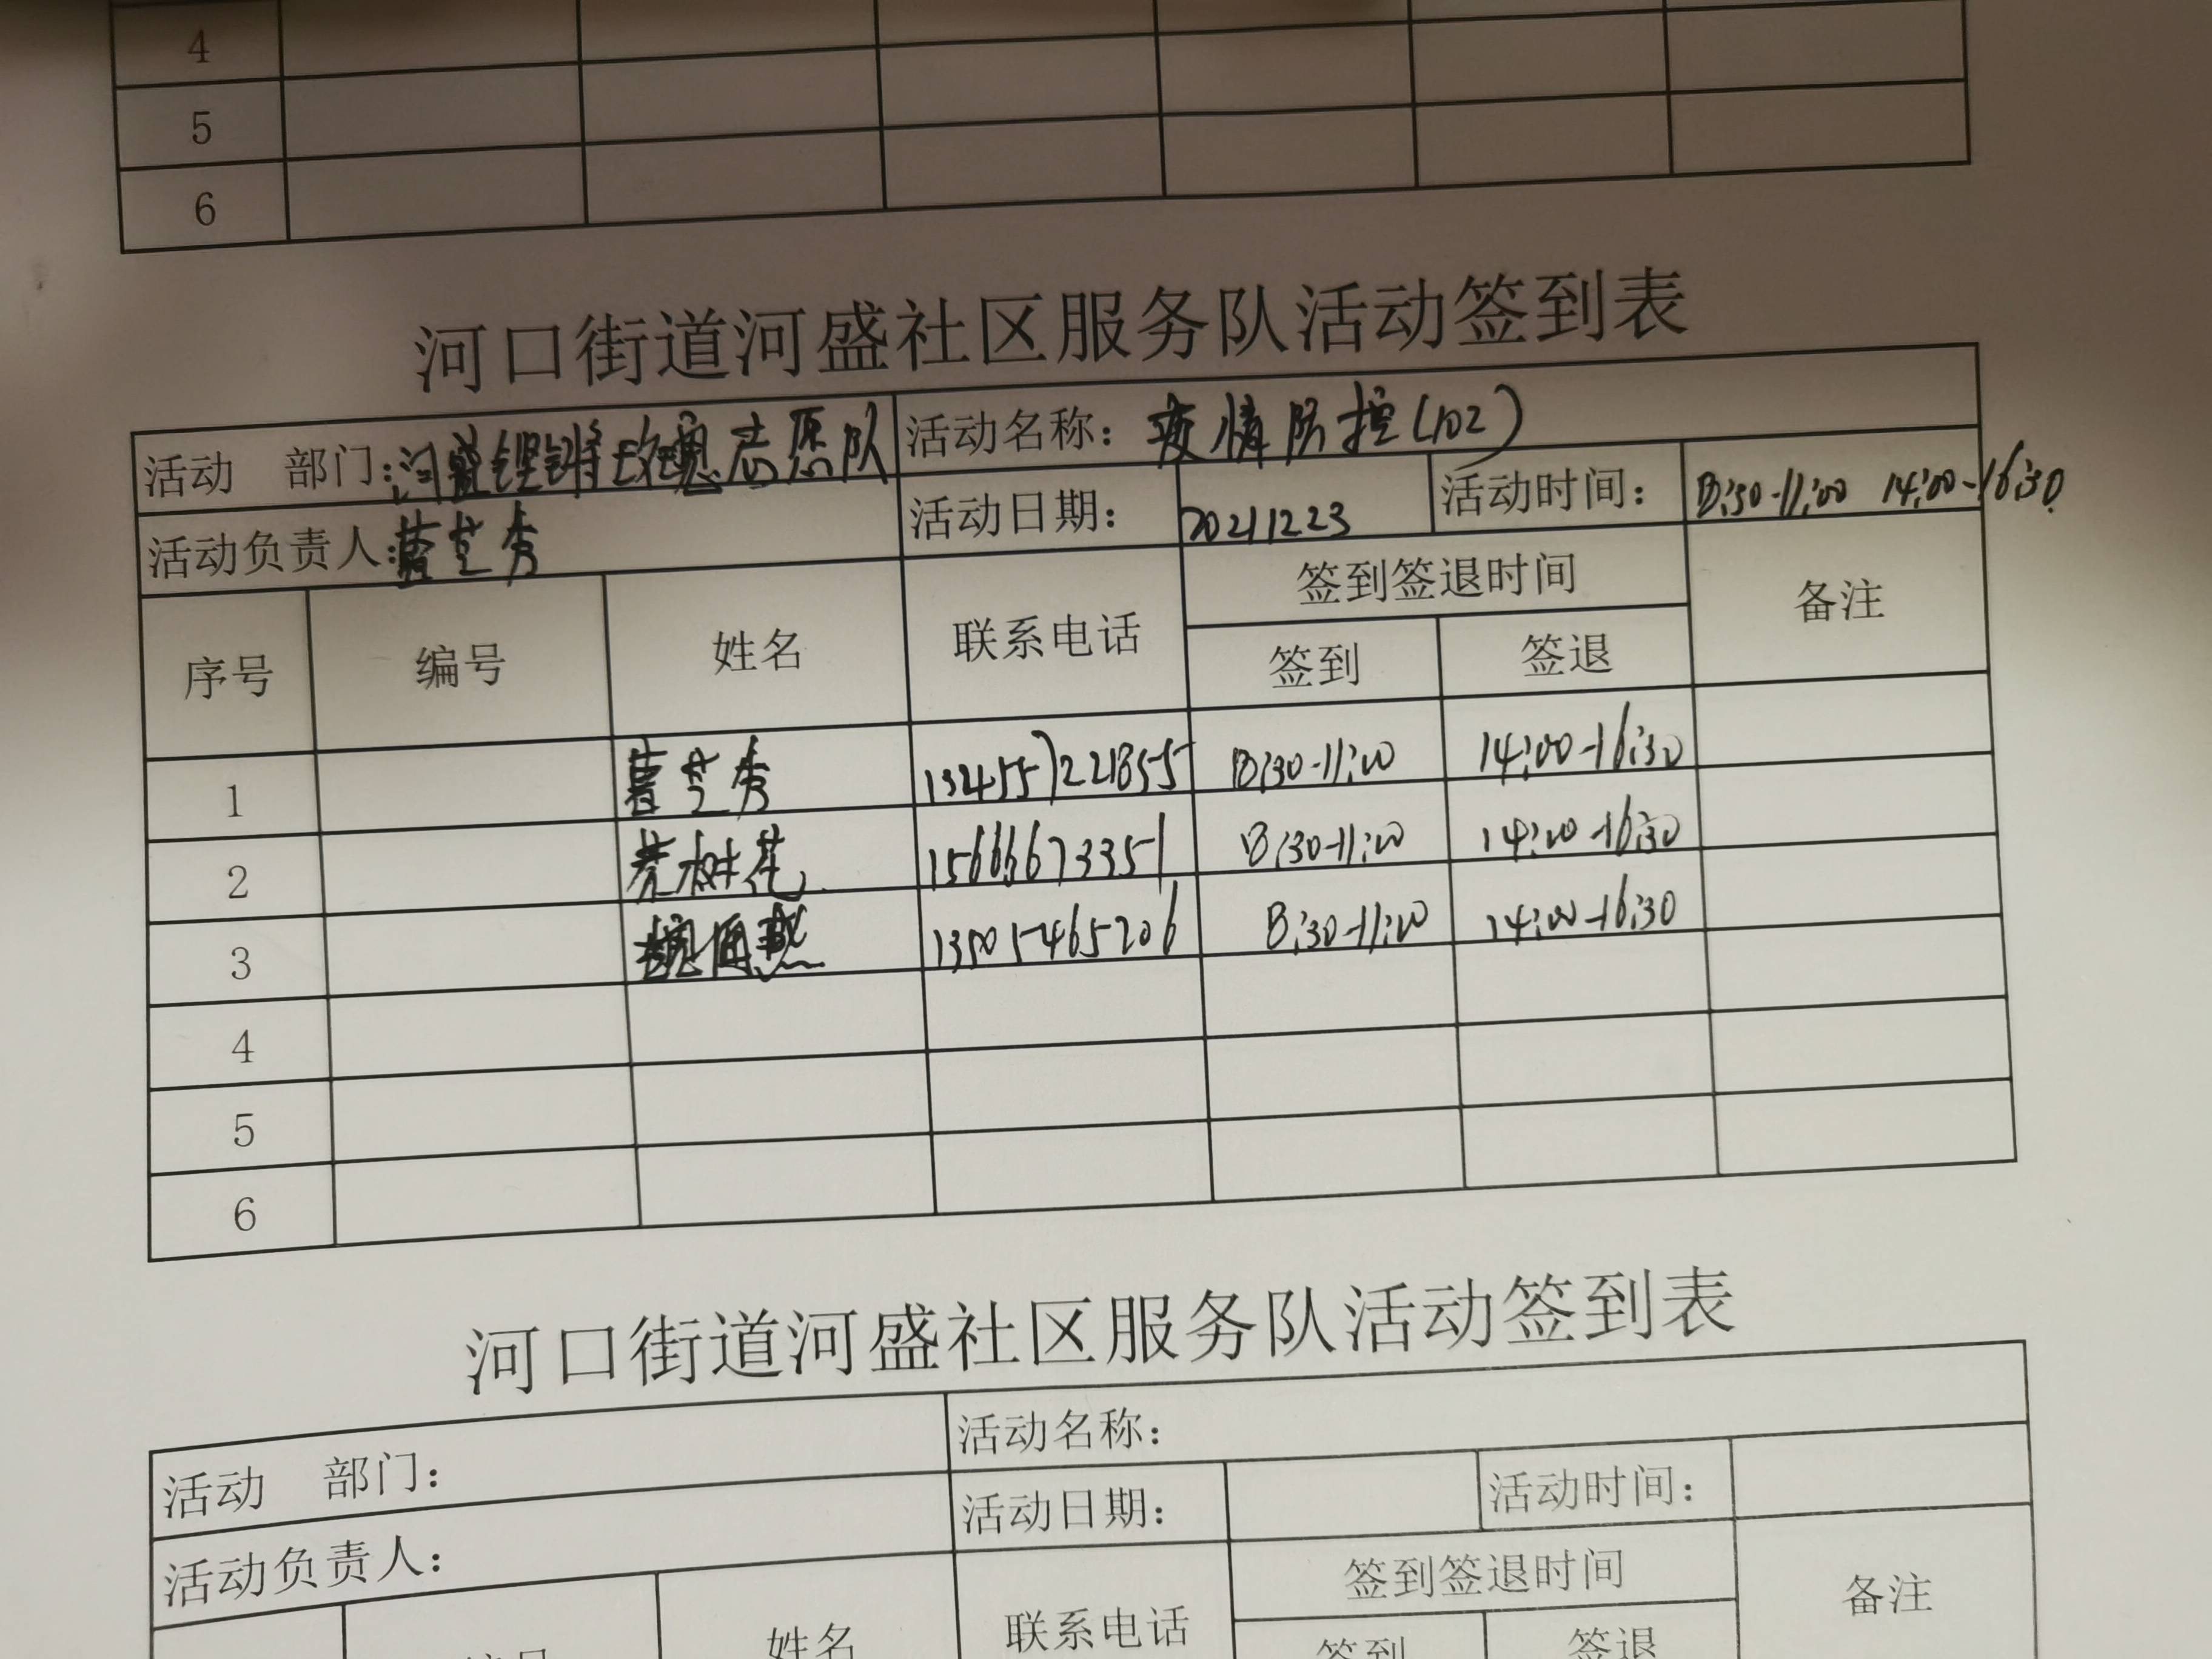 4
5
6
河口街道河盛社区服务队活动签到表
活动 部门:河盛铿锵玫瑰志愿队 活动名称: 疫情防控(102)
活动负责人: 芝秀 活动日期: 20211223 活动时间: 8:30-11:00 14:00-16:30
序号 编号 姓名 联系电话 签到签退时间 备注
签到 签退
1 芝秀 8:30-11:00 14:00-16:30
2 树花 15666673351 8:30-11:00 14:00-16:30
3 13505465206 8:30-11:00 14:00-16:30
4
5
6
河口街道河盛社区服务队活动签到表
活动 部门: 活动名称:
活动负责人: 活动日期: 活动时间:
编号 姓名 联系电话 签到签退时间 备注
签到 签退